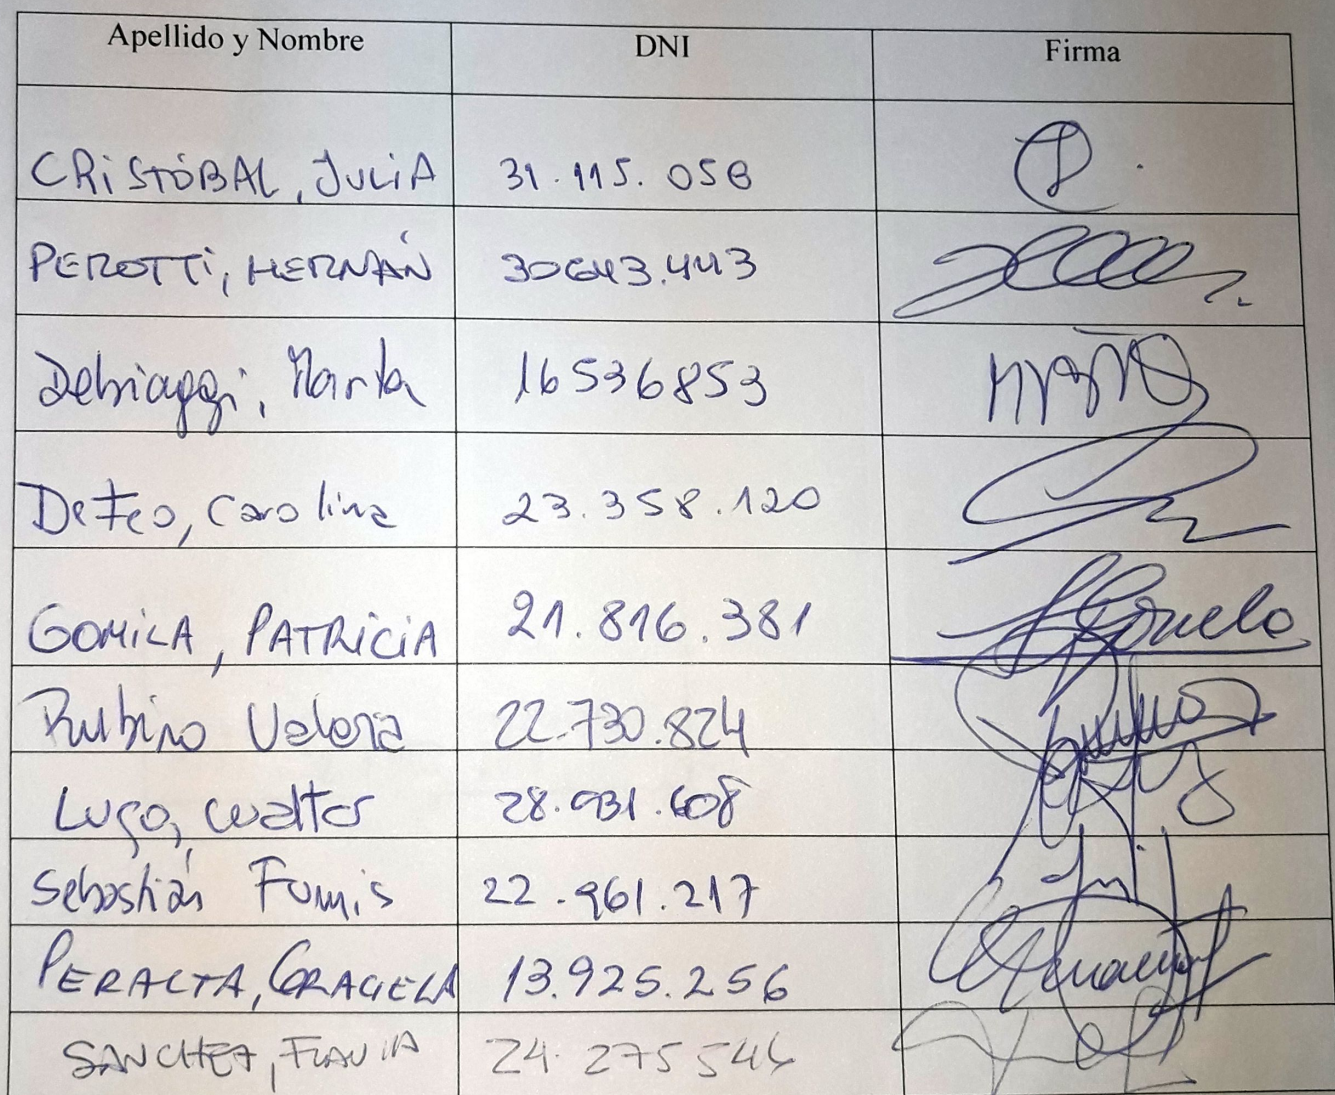 Apellido y Nombre DNI Firma
CRISTÓBAL, JULIA 31.115.058
PEROTTI, HERNÁN 30643.443
Debiaggi, Marta 16536853
De Feo, Carolina 23.358.120
GOMILA, PATRICIA 21.816.381
Rubino Valeria 22.730.824
Lugo, Walter 28.931.608
Sebastián Fumis 22.961.217
PERALTA, GRACIELA 13.925.256
SANCHEZ, FLAVIA 24.275546